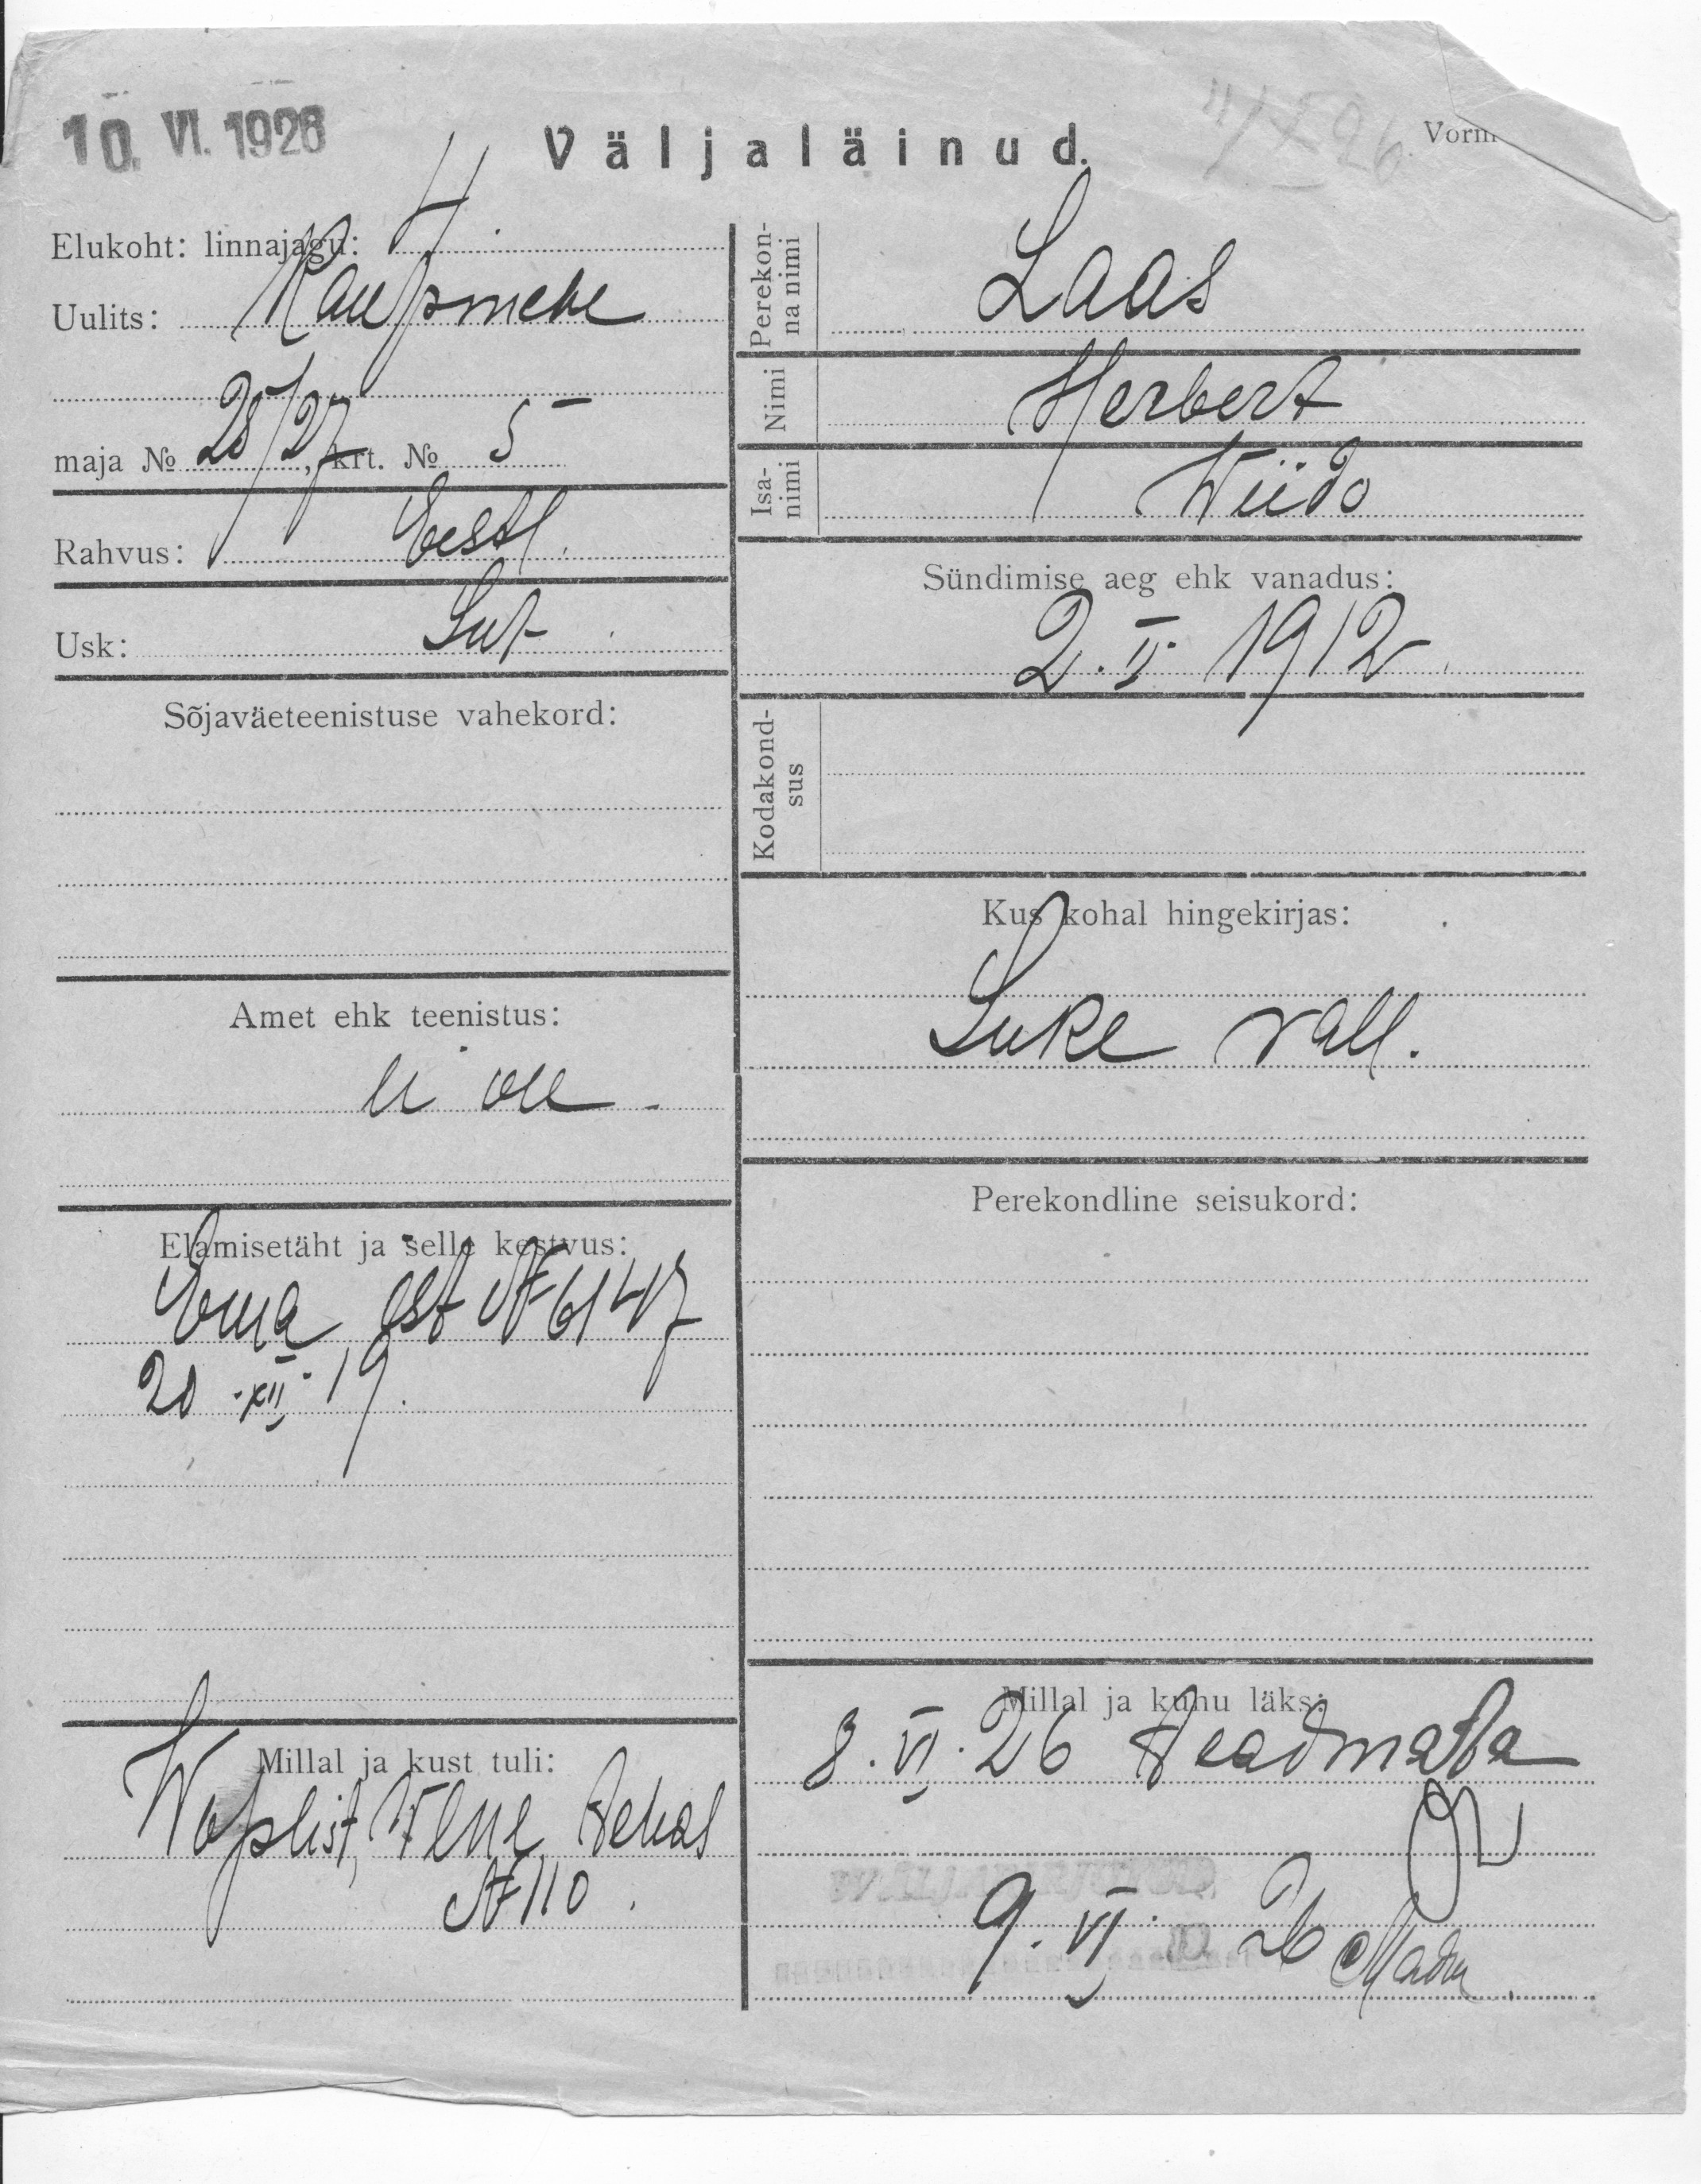 10. VI. 1926
Väljaläinud.
Vorm
Elukoht: linnajagu: 4
Uulits: Kaupmehe
maja № 25/27, krt. № 5
Rahvus: Eestl.
Usk: Lut
Sõjaväeteenistuse vahekord:
Amet ehk teenistus:
ei ole
Elamisetäht ja selle kestvus:
Ema est № 6147
20.XII.19.
Millal ja kust tuli:
Wene
№ 110.
Perekonna nimi Laas
Nimi Herbert
Isanimi Wiido
Sündimise aeg ehk vanadus:
2.II.1912.
Kodakondsus
Kus kohal hingekirjas:
Luke vall.
Perekondline seisukord:
Millal ja kuhu läks:
8.VI.26 teadmata
9.VI 26